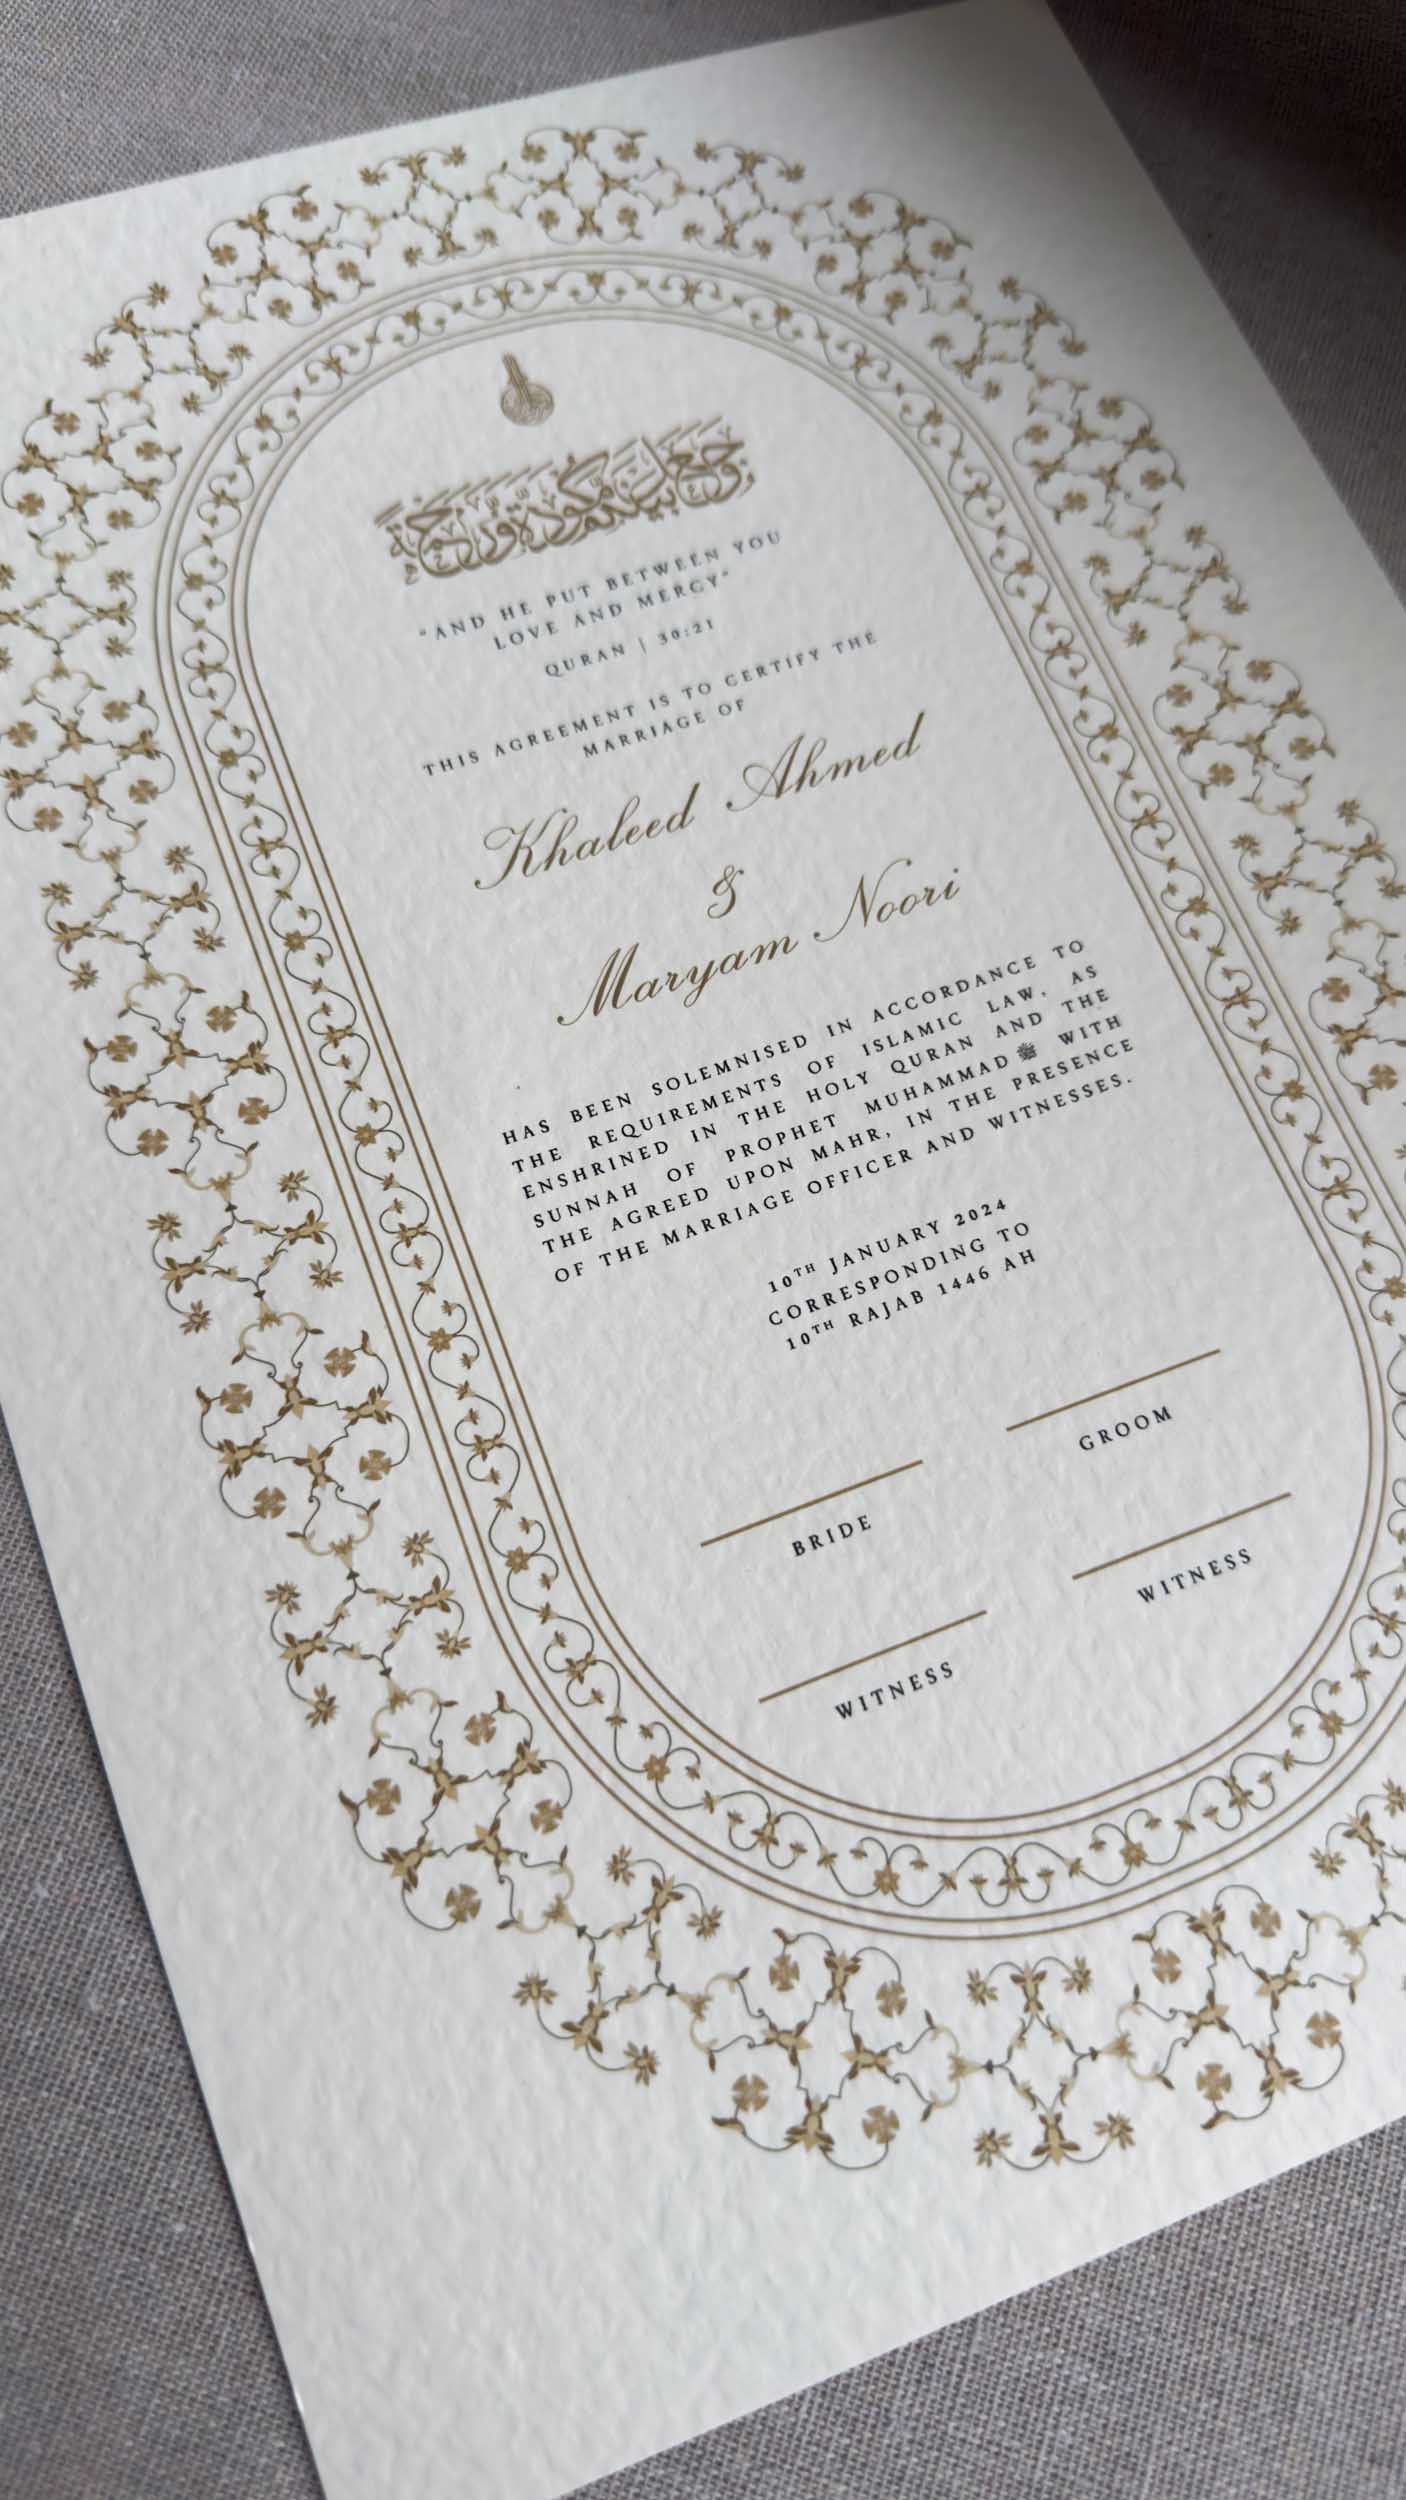 وَجَعَلَ بَيْنَكُم مَّوَدَّةً وَرَحْمَةً
"AND HE PUT BETWEEN YOU
LOVE AND MERCY"
QURAN | 30:21
THIS AGREEMENT IS TO CERTIFY THE
MARRIAGE OF
Khaleed Ahmed
&
Maryam Noori
HAS BEEN SOLEMNISED IN ACCORDANCE TO
THE REQUIREMENTS OF ISLAMIC LAW, AS
ENSHRINED IN THE HOLY QURAN AND THE
SUNNAH OF PROPHET MUHAMMAD ﷺ WITH
THE AGREED UPON MAHR, IN THE PRESENCE
OF THE MARRIAGE OFFICER AND WITNESSES.
10TH JANUARY 2024
CORRESPONDING TO
10TH RAJAB 1446 AH
GROOM
BRIDE
WITNESS
WITNESS